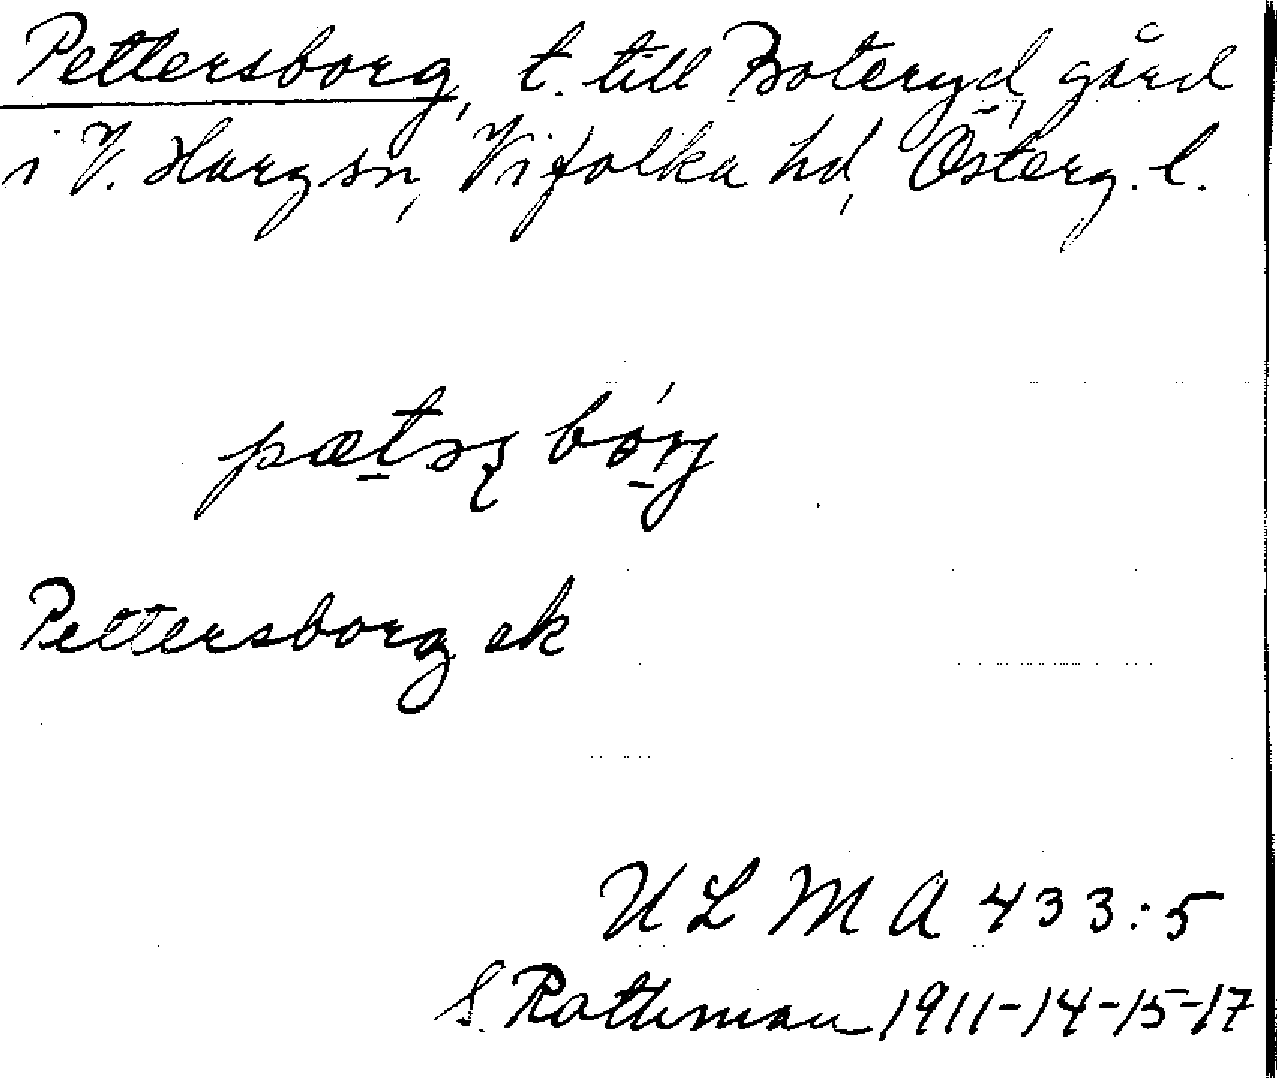 Pettersborg, t. till Boteryd, gård
i V. Harg sn, Vifolka hd, Österg. l.
Pettersborg ek
U L M A 433:5
S. Rothman 1911-14-15-17